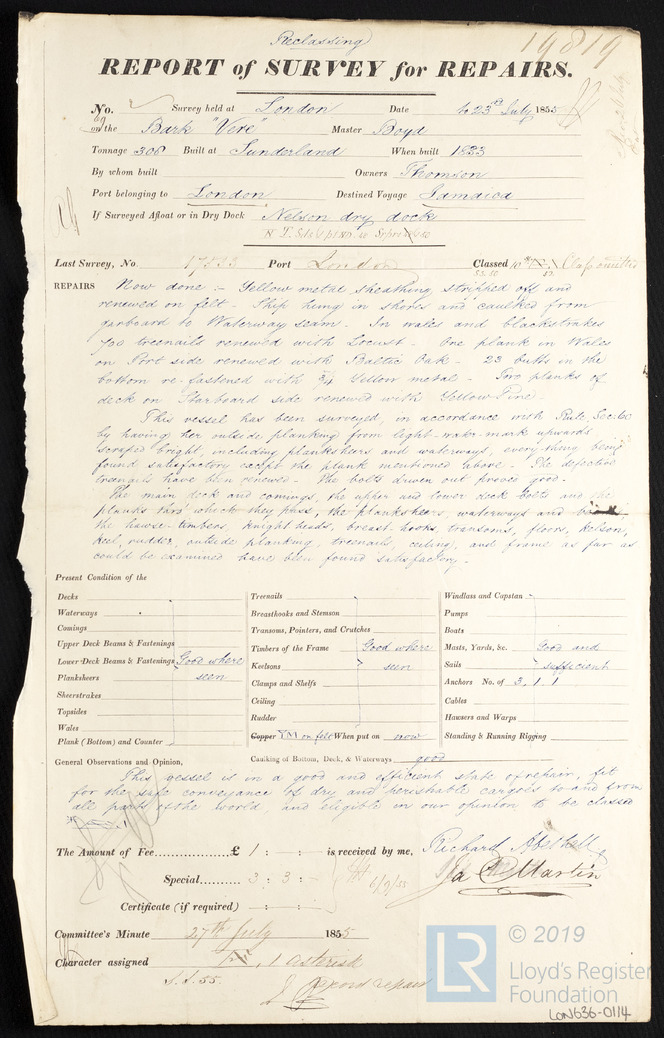 Reclassing
19819
REPORT of SURVEY for REPAIRS.
No. Survey held at London Date to 23rd July 1855
on the Bark "Vere" Master Boyd
Tonnage 308 Built at Sunderland When built 1833
By whom built Owners Thomson
Port belonging to London Destined Voyage Jamaica
If Surveyed Afloat or in Dry Dock Nelson dry dock
Last Survey, No. Port London Classed Class omitted
REPAIRS Now done :- Yellow metal sheathing stripped off and
renewed on felt. Ship hung in shores and caulked from
garboard to Waterway seam. In wales and blackstrakes
700 treenails renewed with Locust. One plank in Wales
on Port side renewed with Baltic Oak. 23 butts in the
bottom re-fastened with 3/4 Yellow metal. planks of
deck on Starboard side renewed with Yellow Pine.
This vessel has been surveyed, in accordance with Rule Sec. 60
by having her outside planking from light-water-mark upwards
scraped bright, including plankshears and waterways, everything being
found satisfactory except the plank mentioned above. The defective
treenails have been renewed. The bolts driven out proved good.
The main deck and comings, the upper and lower deck bolts and the
planks thro' which they pass, the plankshears, waterways and
the hawse-timbers, knightheads, breast-hooks, transoms, floors, kelson,
keel, rudder, outside planking, treenails, ceiling, and frame as far as
could be examined have been found satisfactory.
Present Condition of the
Decks
Waterways
Comings
Upper Deck Beams & Fastenings
Lower Deck Beams & Fastenings Good where
Planksheers seen
Sheerstrakes
Topsides
Wales
Plank (Bottom) and Counter
Treenails
Breasthooks and Stemson
Transoms, Pointers, and Crutches
Timbers of the Frame Good where
Keelsons seen
Clamps and Shelfs
Ceiling
Rudder
Copper YM on felt When put on now
Caulking of Bottom, Deck, & Waterways good
Windlass and Capstan
Pumps
Boats
Masts, Yards, &c. Good and
Sails sufficient
Anchors No. of 3, 1, 1
Cables
Hawsers and Warps
Standing & Running Rigging
General Observations and Opinion,
This vessel is in a good and efficient state of repair, fit
for the safe conveyance of dry and perishable cargoes to and from
all parts of the world, and eligible in our opinion to be classed
The Amount of Fee £ 1 : - : - is received by me, Richard Abethell
Special 3 : 3 : - 6/9/55 Martin
Certificate (if required) : :
Committee's Minute 27th July 1855
Character assigned 1 asterisk
© 2019
LR
Lloyd's Register
Foundation
LON636-0114